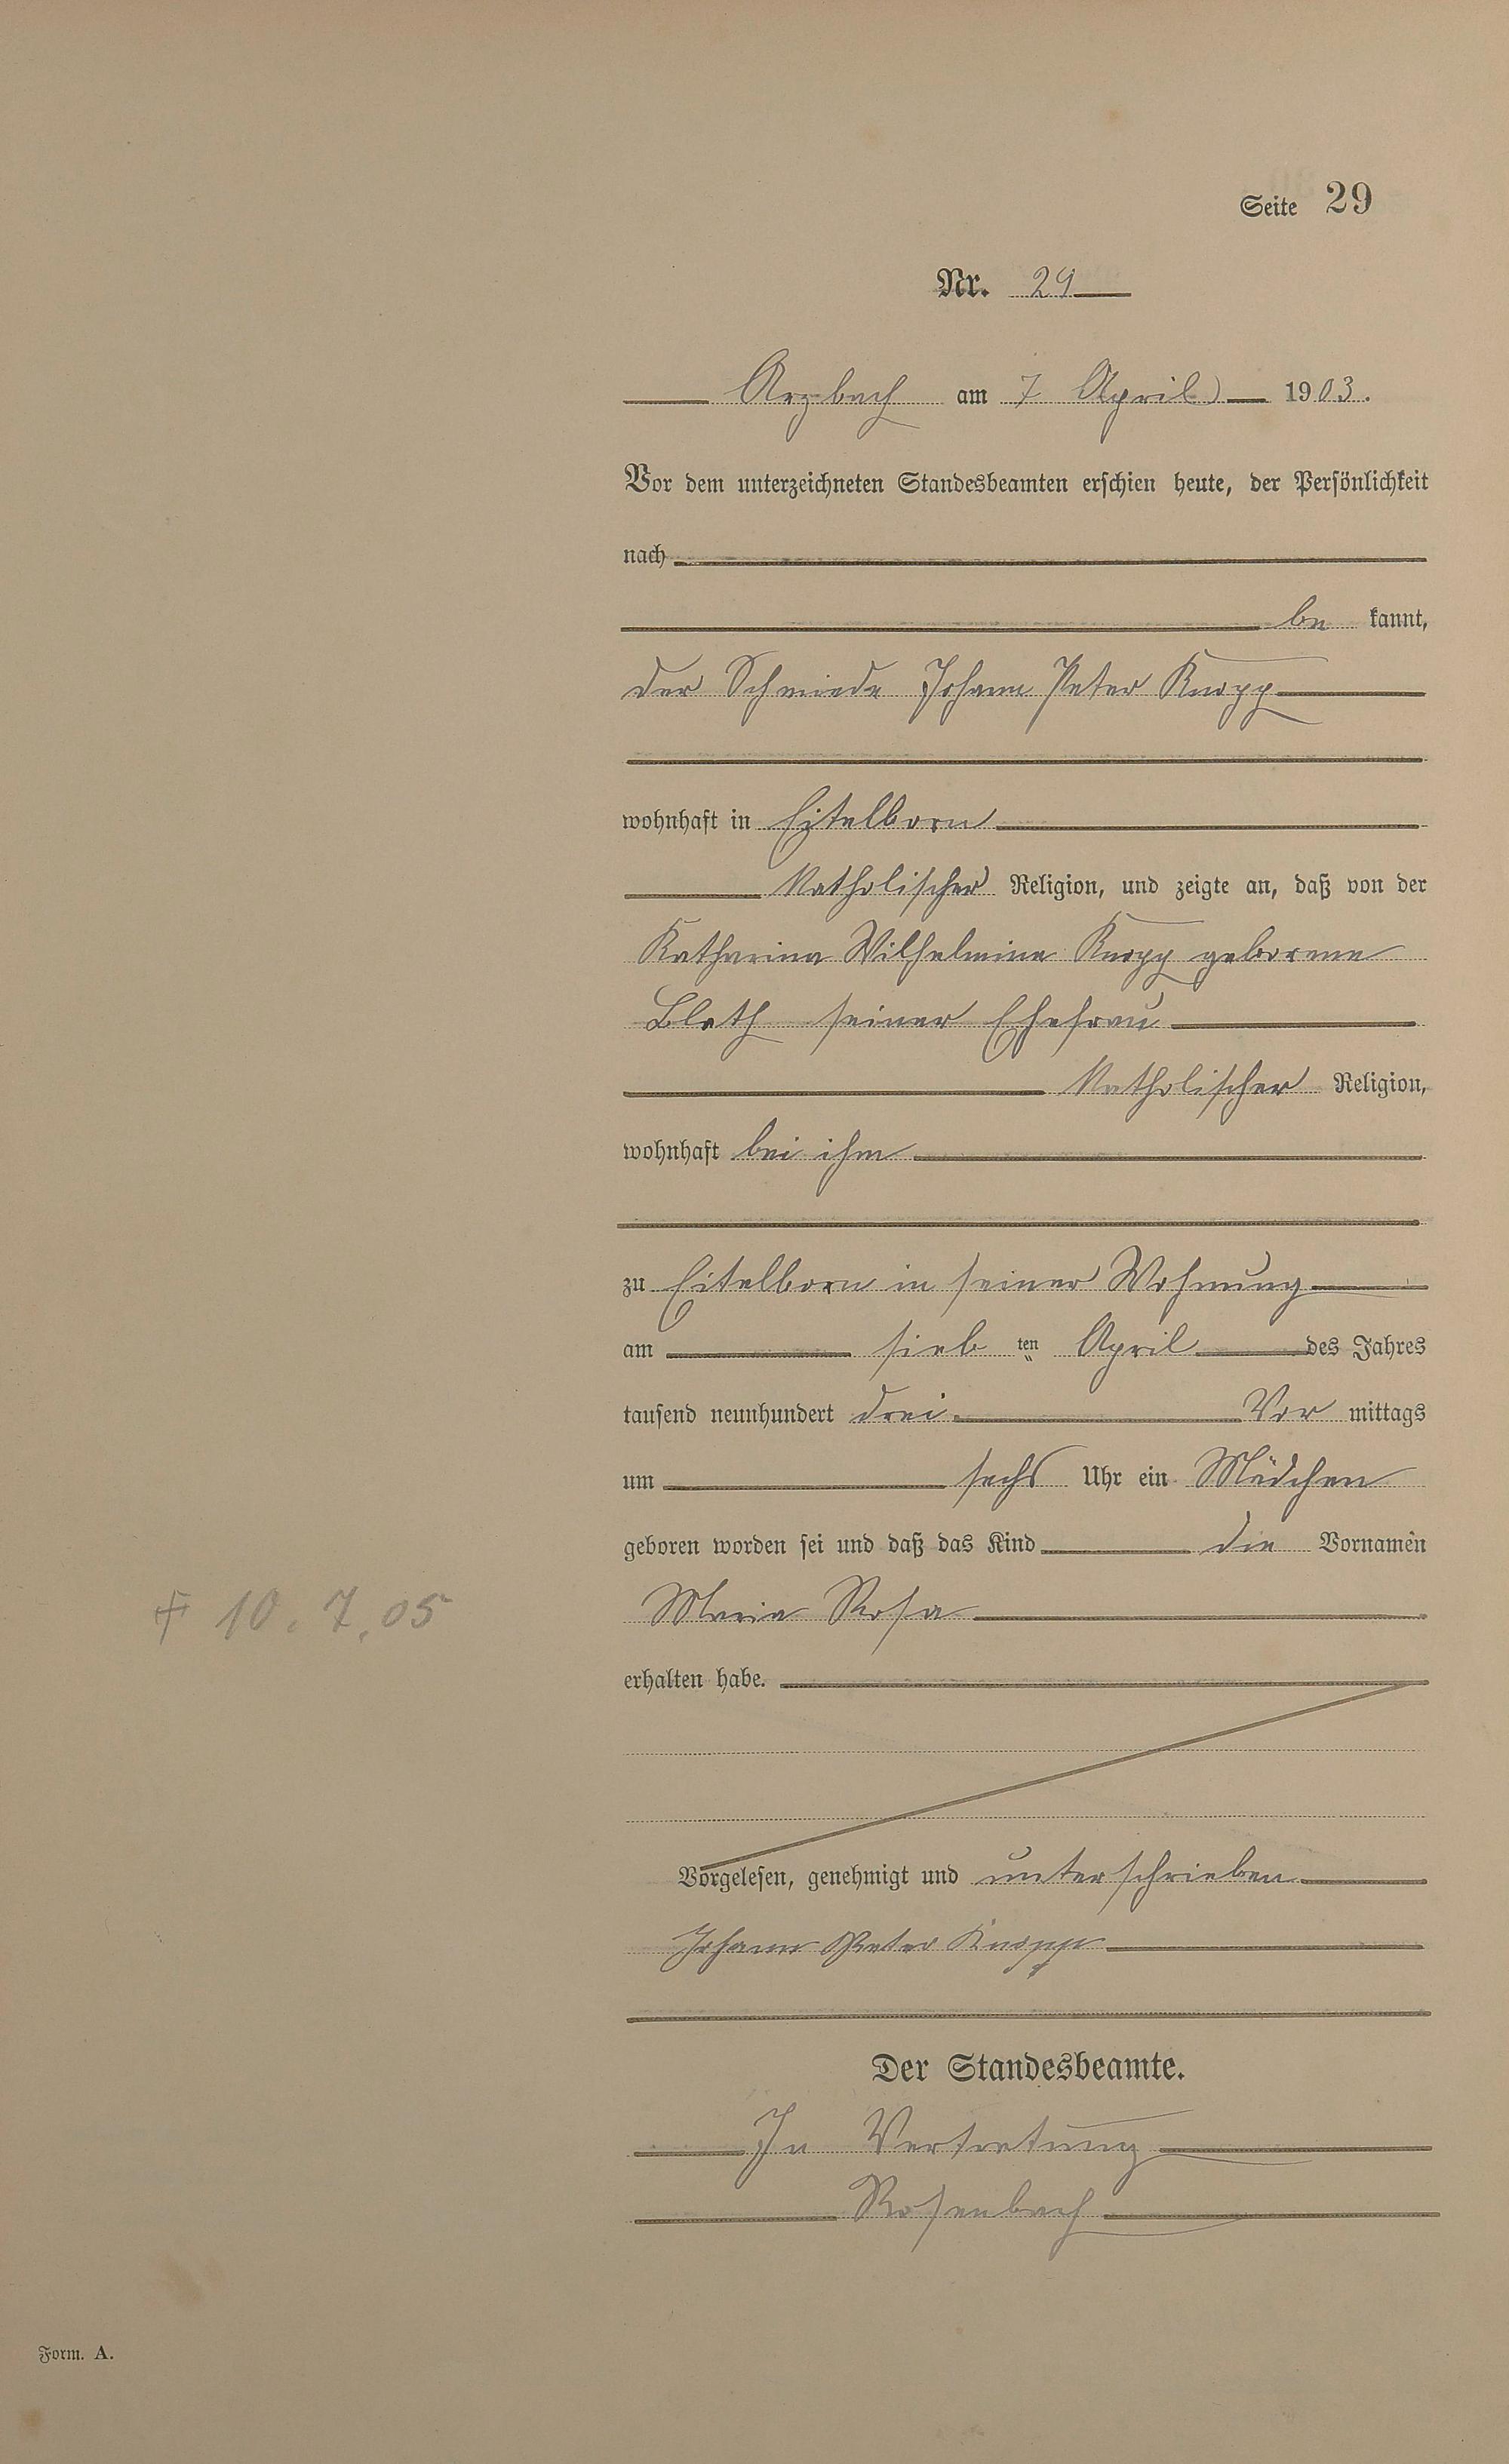 Seite 29
Nr. 29
Arzbach am 7 April 1903.
Vor dem unterzeichneten Standesbeamten erschien heute, der Persönlichkeit
nach
be kannt,
der Schmiede Johann Peter Knopp
wohnhaft in Eitelborn
Katholischer Religion, und zeigte an, daß von der
Katharina Wilhelmine Knopp geborene
Blath seiner Ehefrau
Katholischer Religion,
wohnhaft bei ihm
zu Eitelborn in seiner Wohnung
am sieb ten April des Jahres
tausend neunhundert drei Vor mittags
um sechs Uhr ein Mädchen
geboren worden sei und daß das Kind die Vornamen
✝ 10. 7. 05
Maria Rosa
erhalten habe.
Vorgelesen, genehmigt und unterschrieben
Johann Peter Knopp
Der Standesbeamte.
In Vertretung
Rosenbach
Form. A.